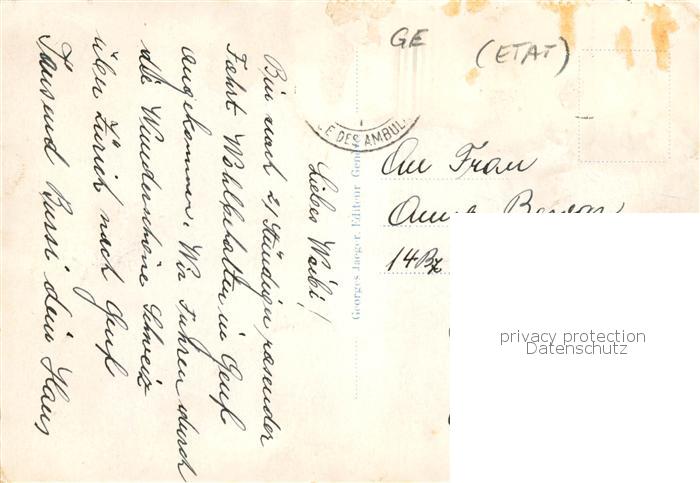 GE
(ETAT)
E DES AMBUL
Georges Jaeger, Editeur, Genève
An Frau
Anna
14
Liebes Weibi!
Bin nach 21 Stündiger rasender
Fahrt Wohlbehalten in Genf
angekommen. Wir Fuhren durch
die Wunderschöne Schweiz
über Zürich nach Genf
Tausend Bussi dein Hans
privacy protection
Datenschutz